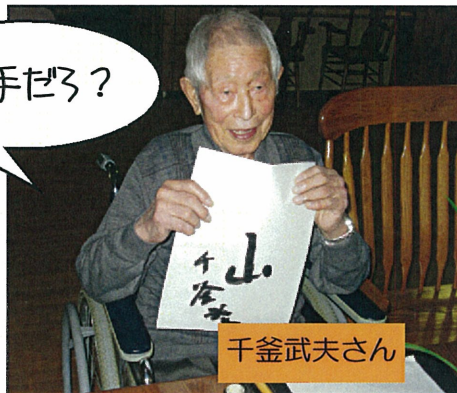 手だろ?
山
千釜
千釜武夫さん